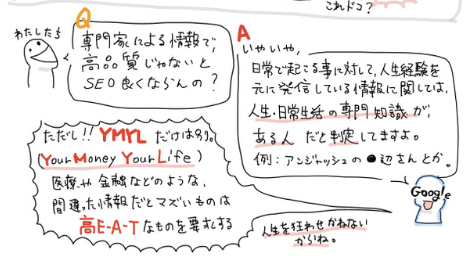 これドコ？
わたしたち
Q
専門家による情報で、
高品質じゃないと
SEO良くならんの？
A
いやいや、
日常で起こる事に対して、人生経験を
元に発信している情報に関しては、
人生・日常生活の専門知識が、
ある人 だと判定してますよ。
例：アンジャッシュの●辺さんとか。
Google
ただし!! YMYL だけは別。
(Your Money Your Life)
医療や金融などのような、
間違った情報だとマズいものは
高E-A-Tなものを要求する
人生を狂わせかねない
からね。